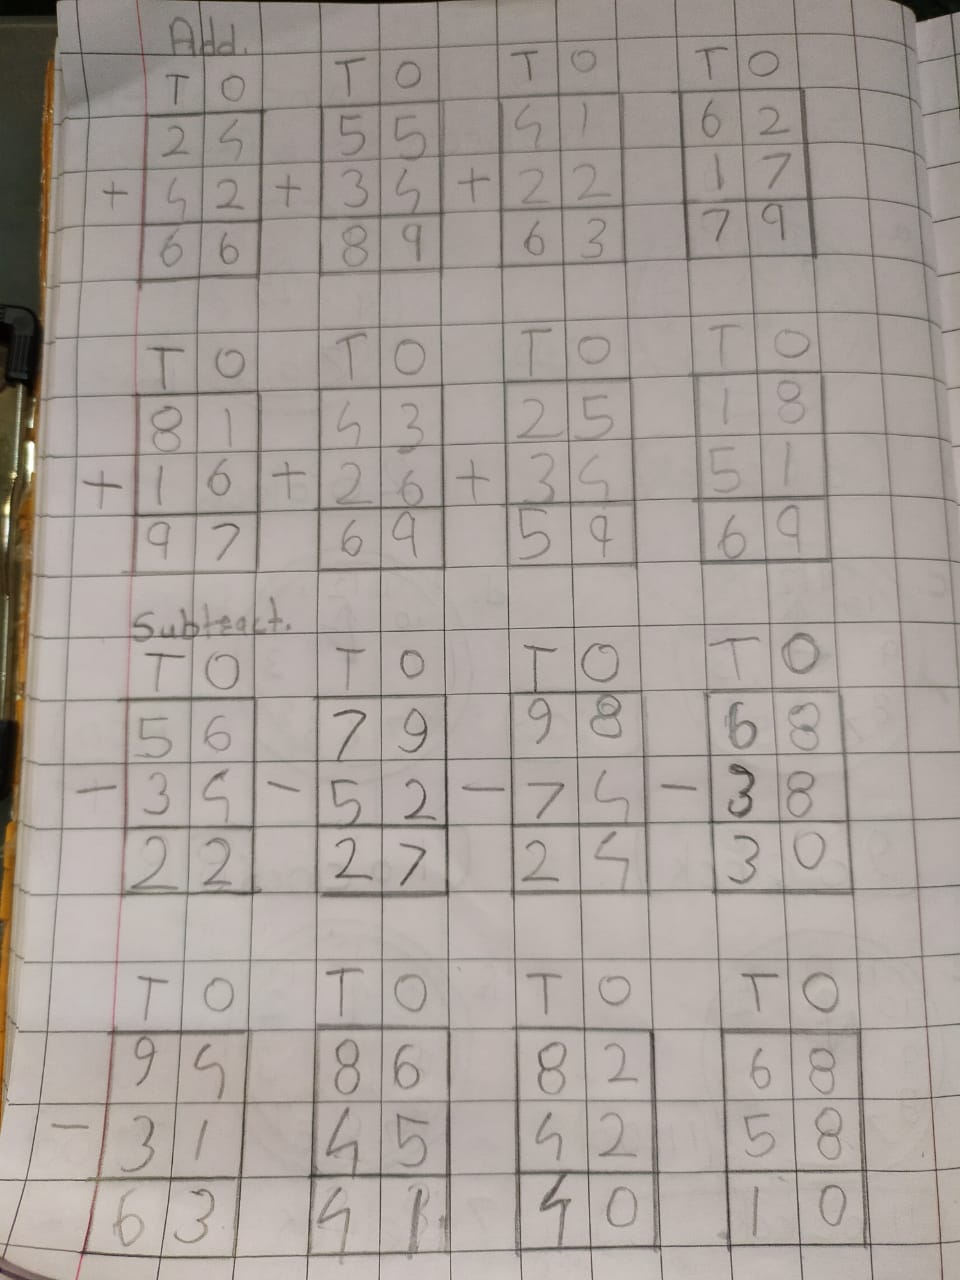 Add.
T O T O T O T O
2 4 5 5 4 1 6 2
+ 4 2 + 3 4 + 2 2 1 7
6 6 8 9 6 3 7 9
T O T O T O T O
8 1 4 3 2 5 1 8
+ 1 6 + 2 6 + 3 4 5 1
9 7 6 9 5 9 6 9
Subteact.
T O T O T O T O
5 6 7 9 9 8 6 8
- 3 4 - 5 2 - 7 4 - 3 8
2 2 2 7 2 4 3 0
T O T O T O T O
9 4 8 6 8 2 6 8
- 3 1 4 5 4 2 5 8
6 3 4 1 4 0 1 0